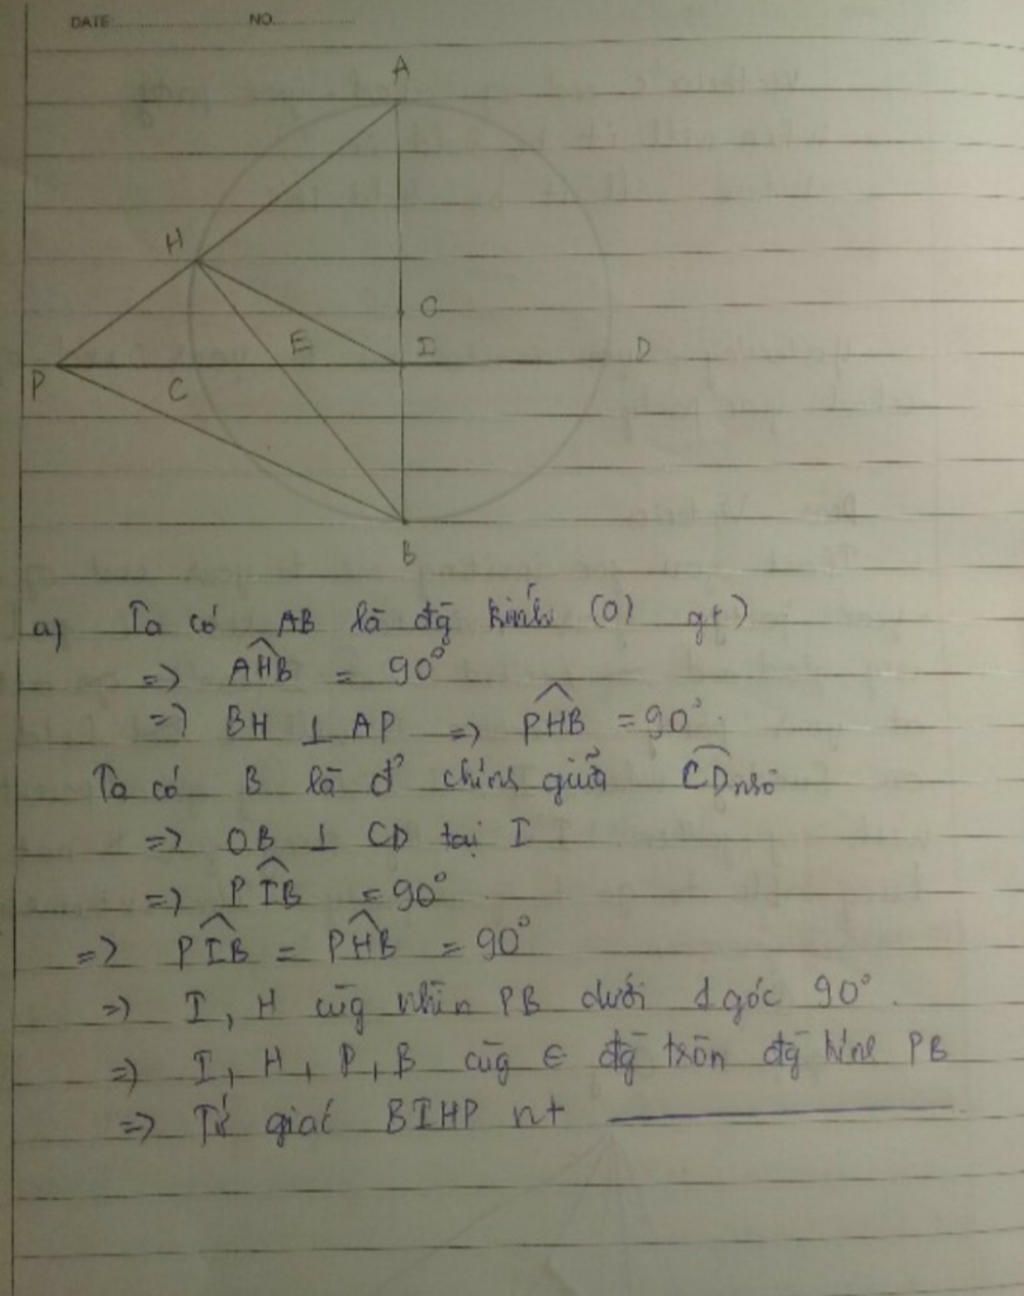 DATE NO.
A
H
O
E I D
P C
B
a) Ta có AB là đg kính (O) gt)
=> AHB = 90°
=> BH ⊥ AP => PHB = 90°
Ta có B là đ' chính giữa CD nhỏ
=> OB ⊥ CD tại I
=> PIB = 90°
=> PIB = PHB = 90°
=> I, H cùg nhìn PB dưới 1 góc 90°.
=> I, H, P, B cùg ∈ đg tròn đg kính PB
=> Tứ giác BIHP nt